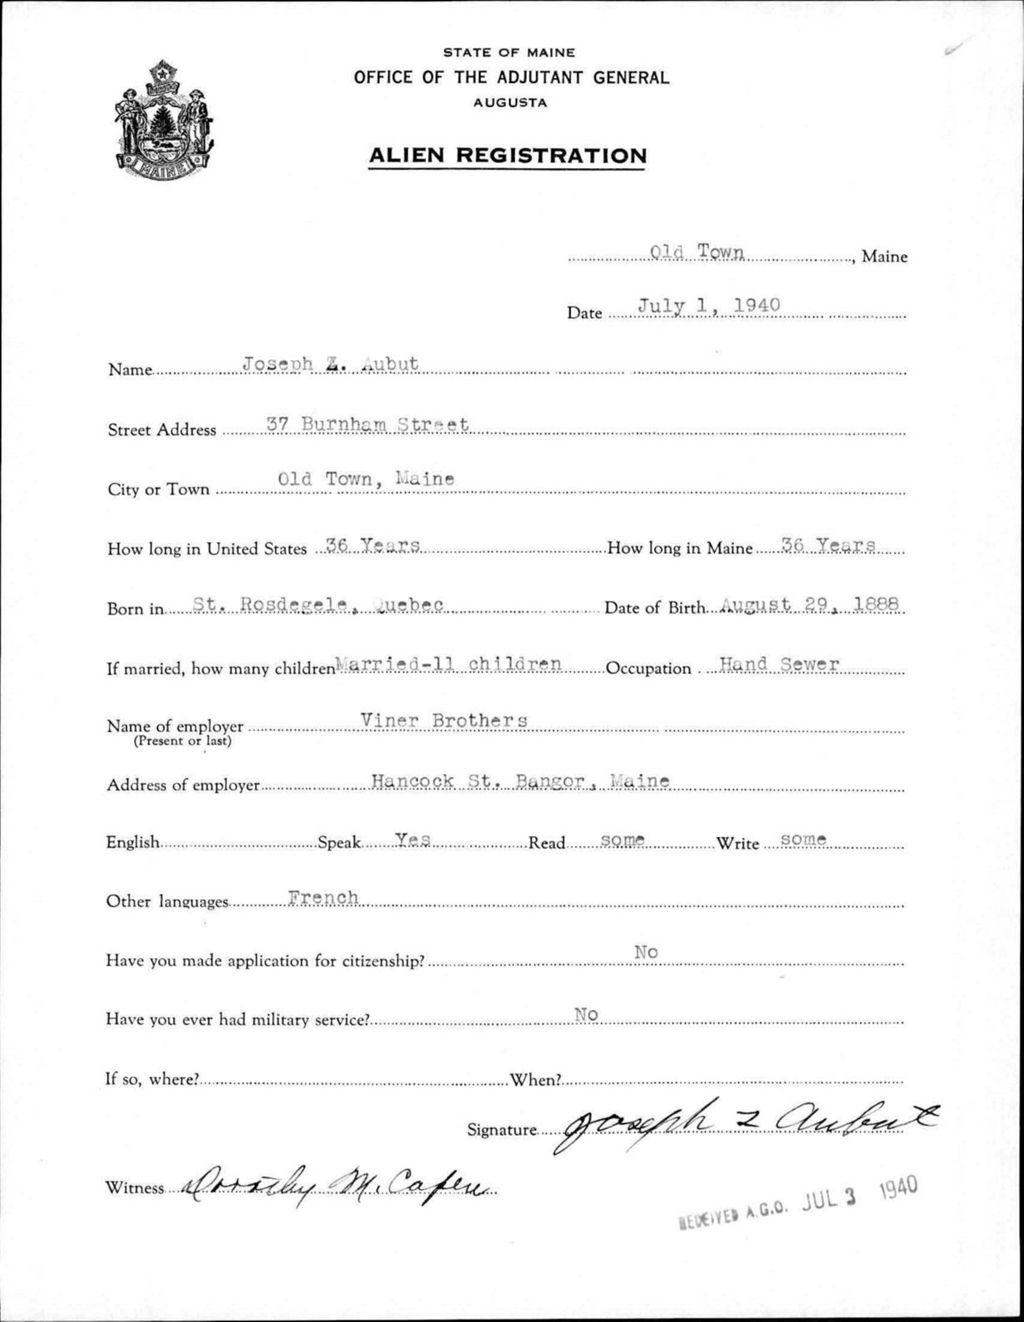 STATE OF MAINE
OFFICE OF THE ADJUTANT GENERAL
AUGUSTA
ALIEN REGISTRATION
MAINE
Old Town, Maine
Date July 1, 1940
Name Joseph Z. Aubut
Street Address 37 Burnham Street
City or Town Old Town, Maine
How long in United States 36 Years How long in Maine 36 Years
Born in St. Rosdegele, Quebec Date of Birth August 29, 1888
If married, how many children Married-11 children Occupation Hand Sewer
Name of employer Viner Brothers
(Present or last)
Address of employer Hancock St. Bangor, Maine
English Speak Yes Read some Write some
Other languages French
Have you made application for citizenship? No
Have you ever had military service? No
If so, where? When?
Signature Joseph Z Aubut
Witness Dorothy M. Capen
RECEIVED A.G.O. JUL 3 1940